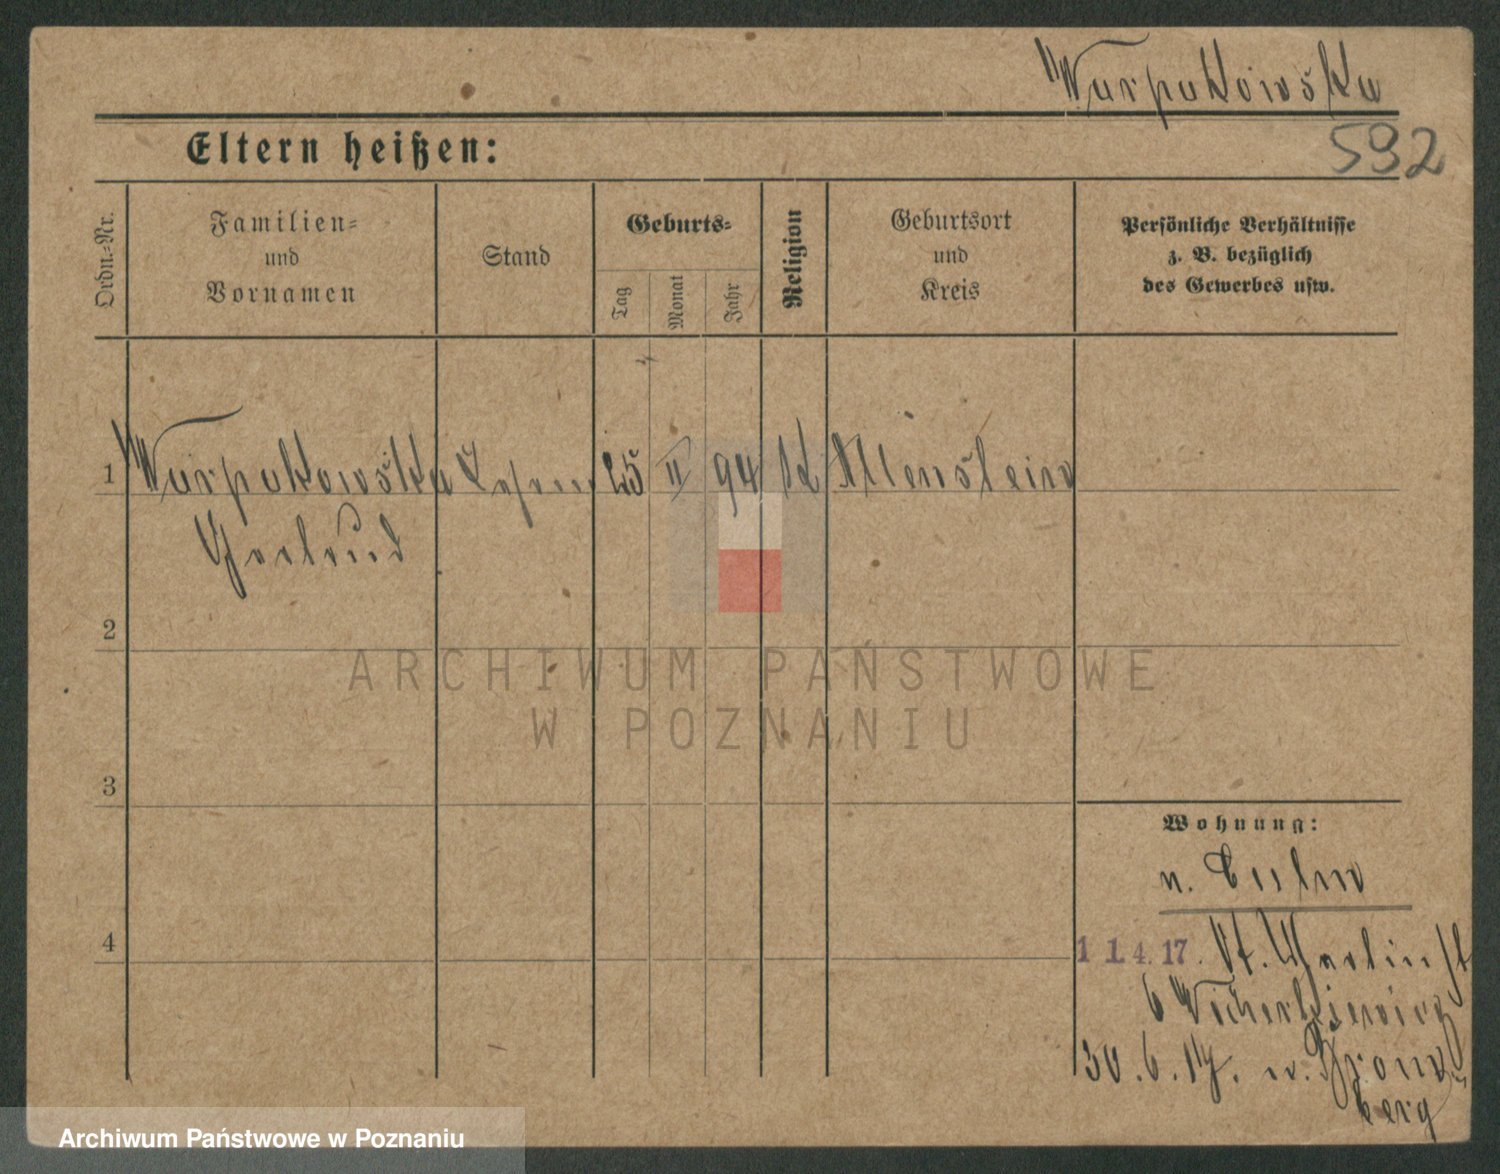 Warpakowska
592
Eltern heißen:
Ordn.=Nr.
Familien=
und
Vornamen
Stand
Geburts=
Tag
Monat
Jahr
Religion
Geburtsort
und
Kreis
Persönliche Verhältnisse
z. B. bezüglich
des Gewerbes usw.
1 Warpakowska 25 II 94 K Allenstein
Gertrud
2
ARCHIWUM PAŃSTWOWE
W POZNANIU
3
Wohnung:
n. Culm
4
11.4.17. St. Martinstr
6
30.6.17. n. Brom=
berg
Archiwum Państwowe w Poznaniu